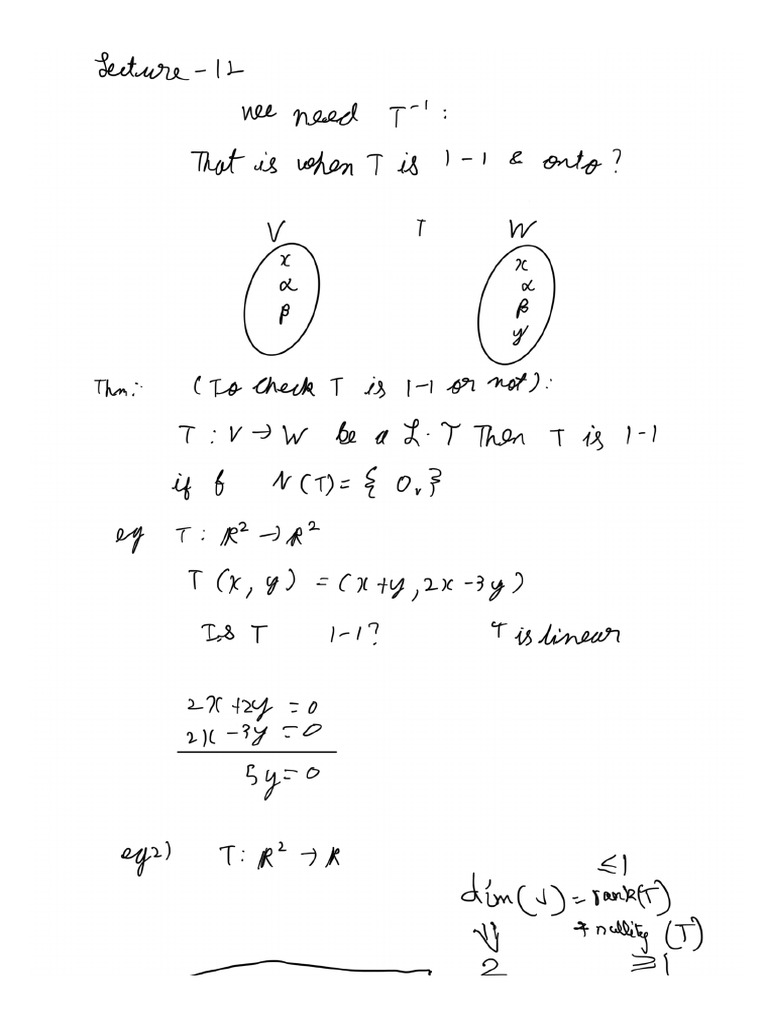 Lecture - 12
we need T⁻¹ :
That is when T is 1-1 & onto?
V T W
x x
α α
β β
y
Thm:- (To check T is 1-1 or not):
T : V → W be a L.T Then T is 1-1
iff N(T) = { 0ᵥ }
eg T : R² → R²
T (x, y) = (x+y, 2x-3y)
Is T 1-1? T is linear
2x+2y = 0
2x-3y = 0
5y = 0
eg2) T : R² → R
≤1
dim(V) = rank(T)
+ nullity (T)
2 ≥1